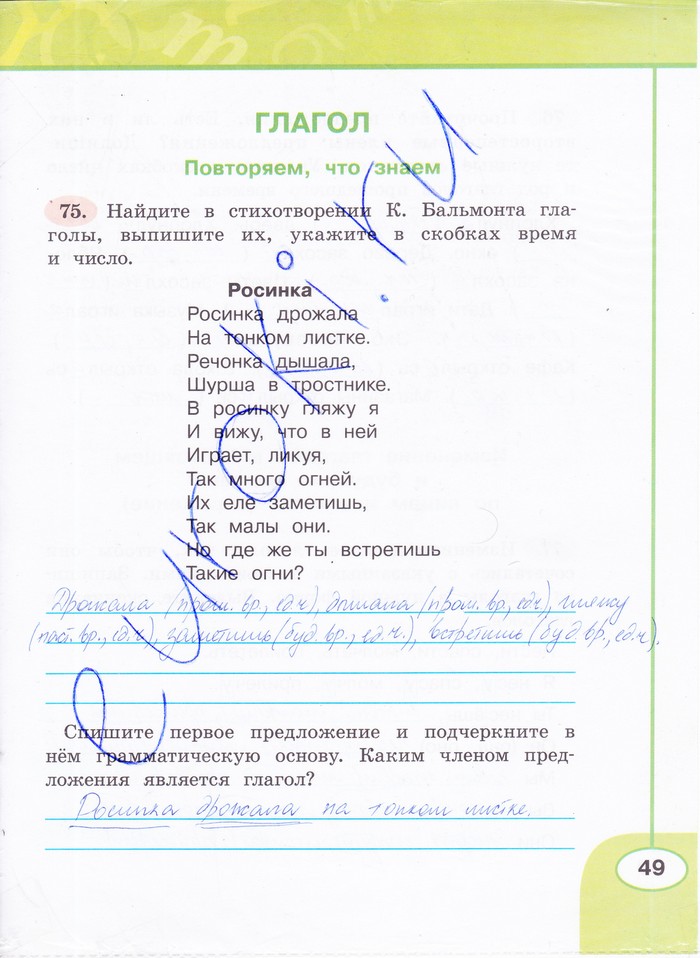 ГЛАГОЛ
Повторяем, что знаем
75. Найдите в стихотворении К. Бальмонта гла-
голы, выпишите их, укажите в скобках время
и число.
Росинка
Росинка дрожала
На тонком листке.
Речонка дышала,
Шурша в тростнике.
В росинку гляжу я
И вижу, что в ней
Играет, ликуя,
Так много огней.
Их еле заметишь,
Так малы они.
Но где же ты встретишь
Такие огни?
Дрожала (прош. вр., ед.ч), дышала (прош. вр., ед.ч), гляжу
(наст. вр., ед.ч), заметишь (буд. вр., ед.ч.), встретишь (буд вр., ед.ч).
Спишите первое предложение и подчеркните в
нём грамматическую основу. Каким членом пред-
ложения является глагол?
Росинка дрожала на тонком листке.
49